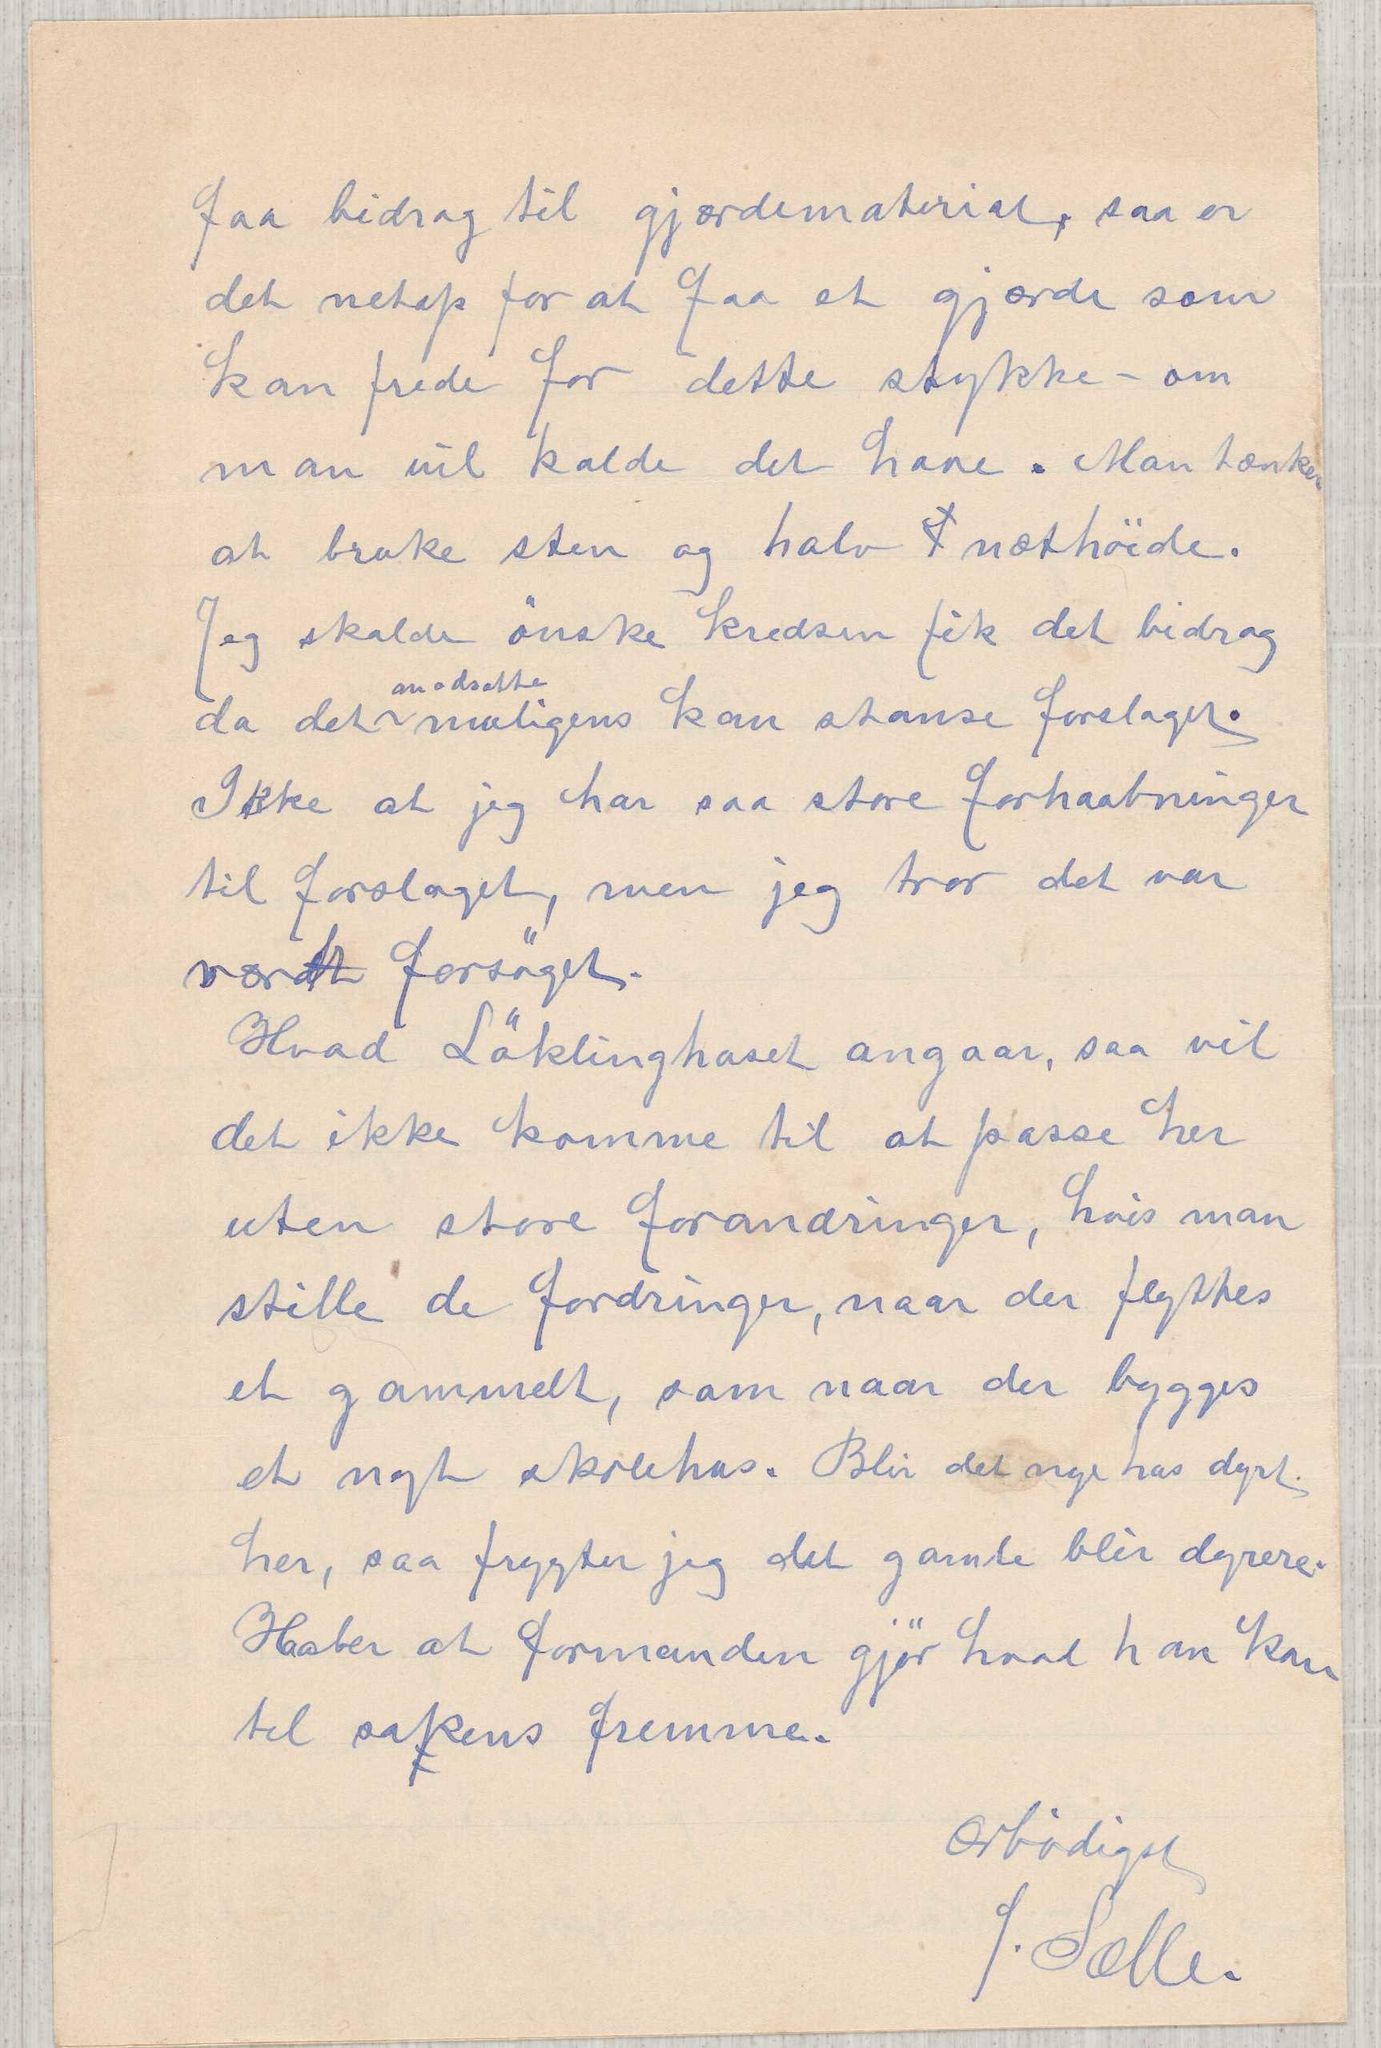 faa bidrag til gjærdemateriat, saa er
det netop for at faa et gjærde som
kan frede for dette stykke – om
man vil kalde det have. Man tænker
at bruke sten og halv næthöide.
Jeg skulde önske kredsen fik det bidrag
modsatte
da det muligens kan stanse forslaget.
Ikke at jeg har saa store forhaabninger
til forslaget, men jeg tror det var
værdt forsöget.
Hvad Löklinghuset angaar, saa vil
det ikke komme til at passe her
uten store forandringer, hvis man
stille de fordringer, naar der flyttes
et gammelt, som naar der bygges
et nyt skolehus. Blir det nye hus dyrt
her, saa frygter jeg det gamle blir dyrere.
Haaber at formanden gjör hvad han kan
til sakens fremme.
Ærbödigst
J. Sælle.